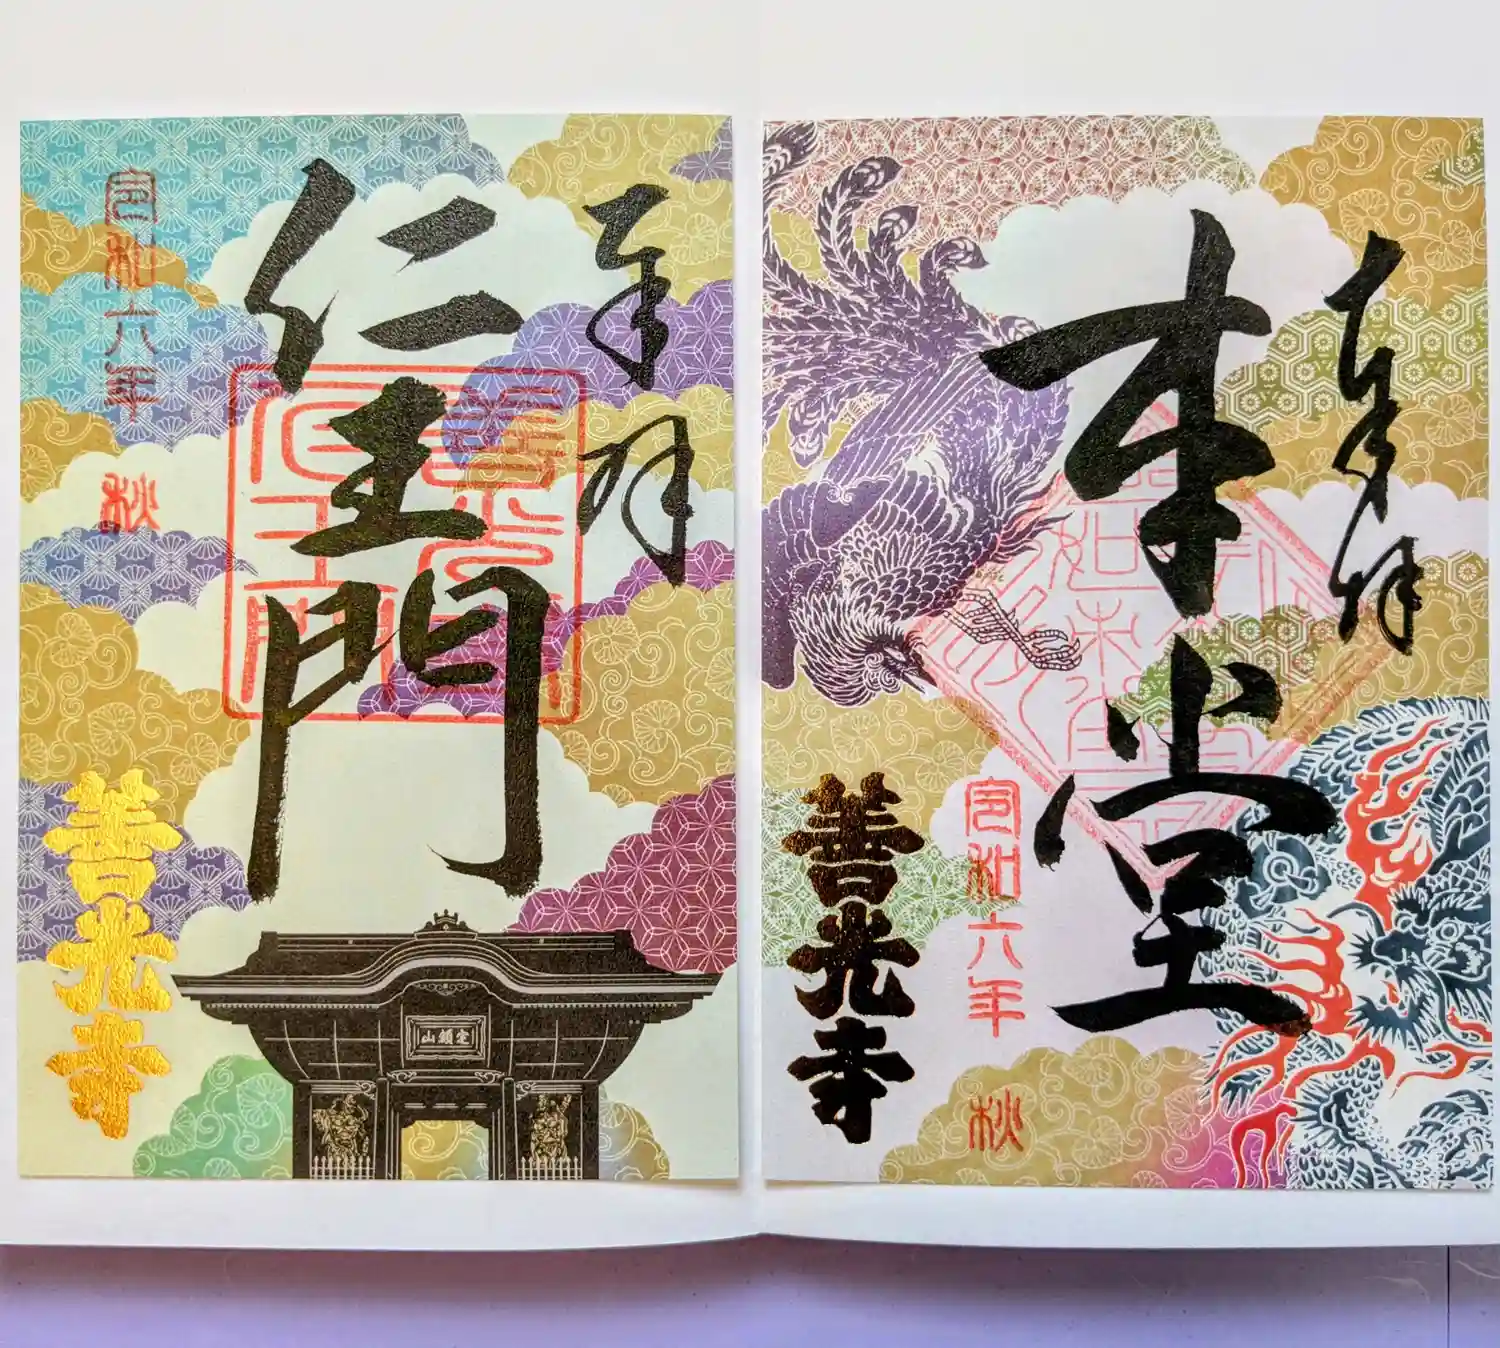 奉拝
本堂
令和六年
秋
善光寺
奉拝
仁王門
善光寺
仁王門
定額山
令和六年
秋
善光寺